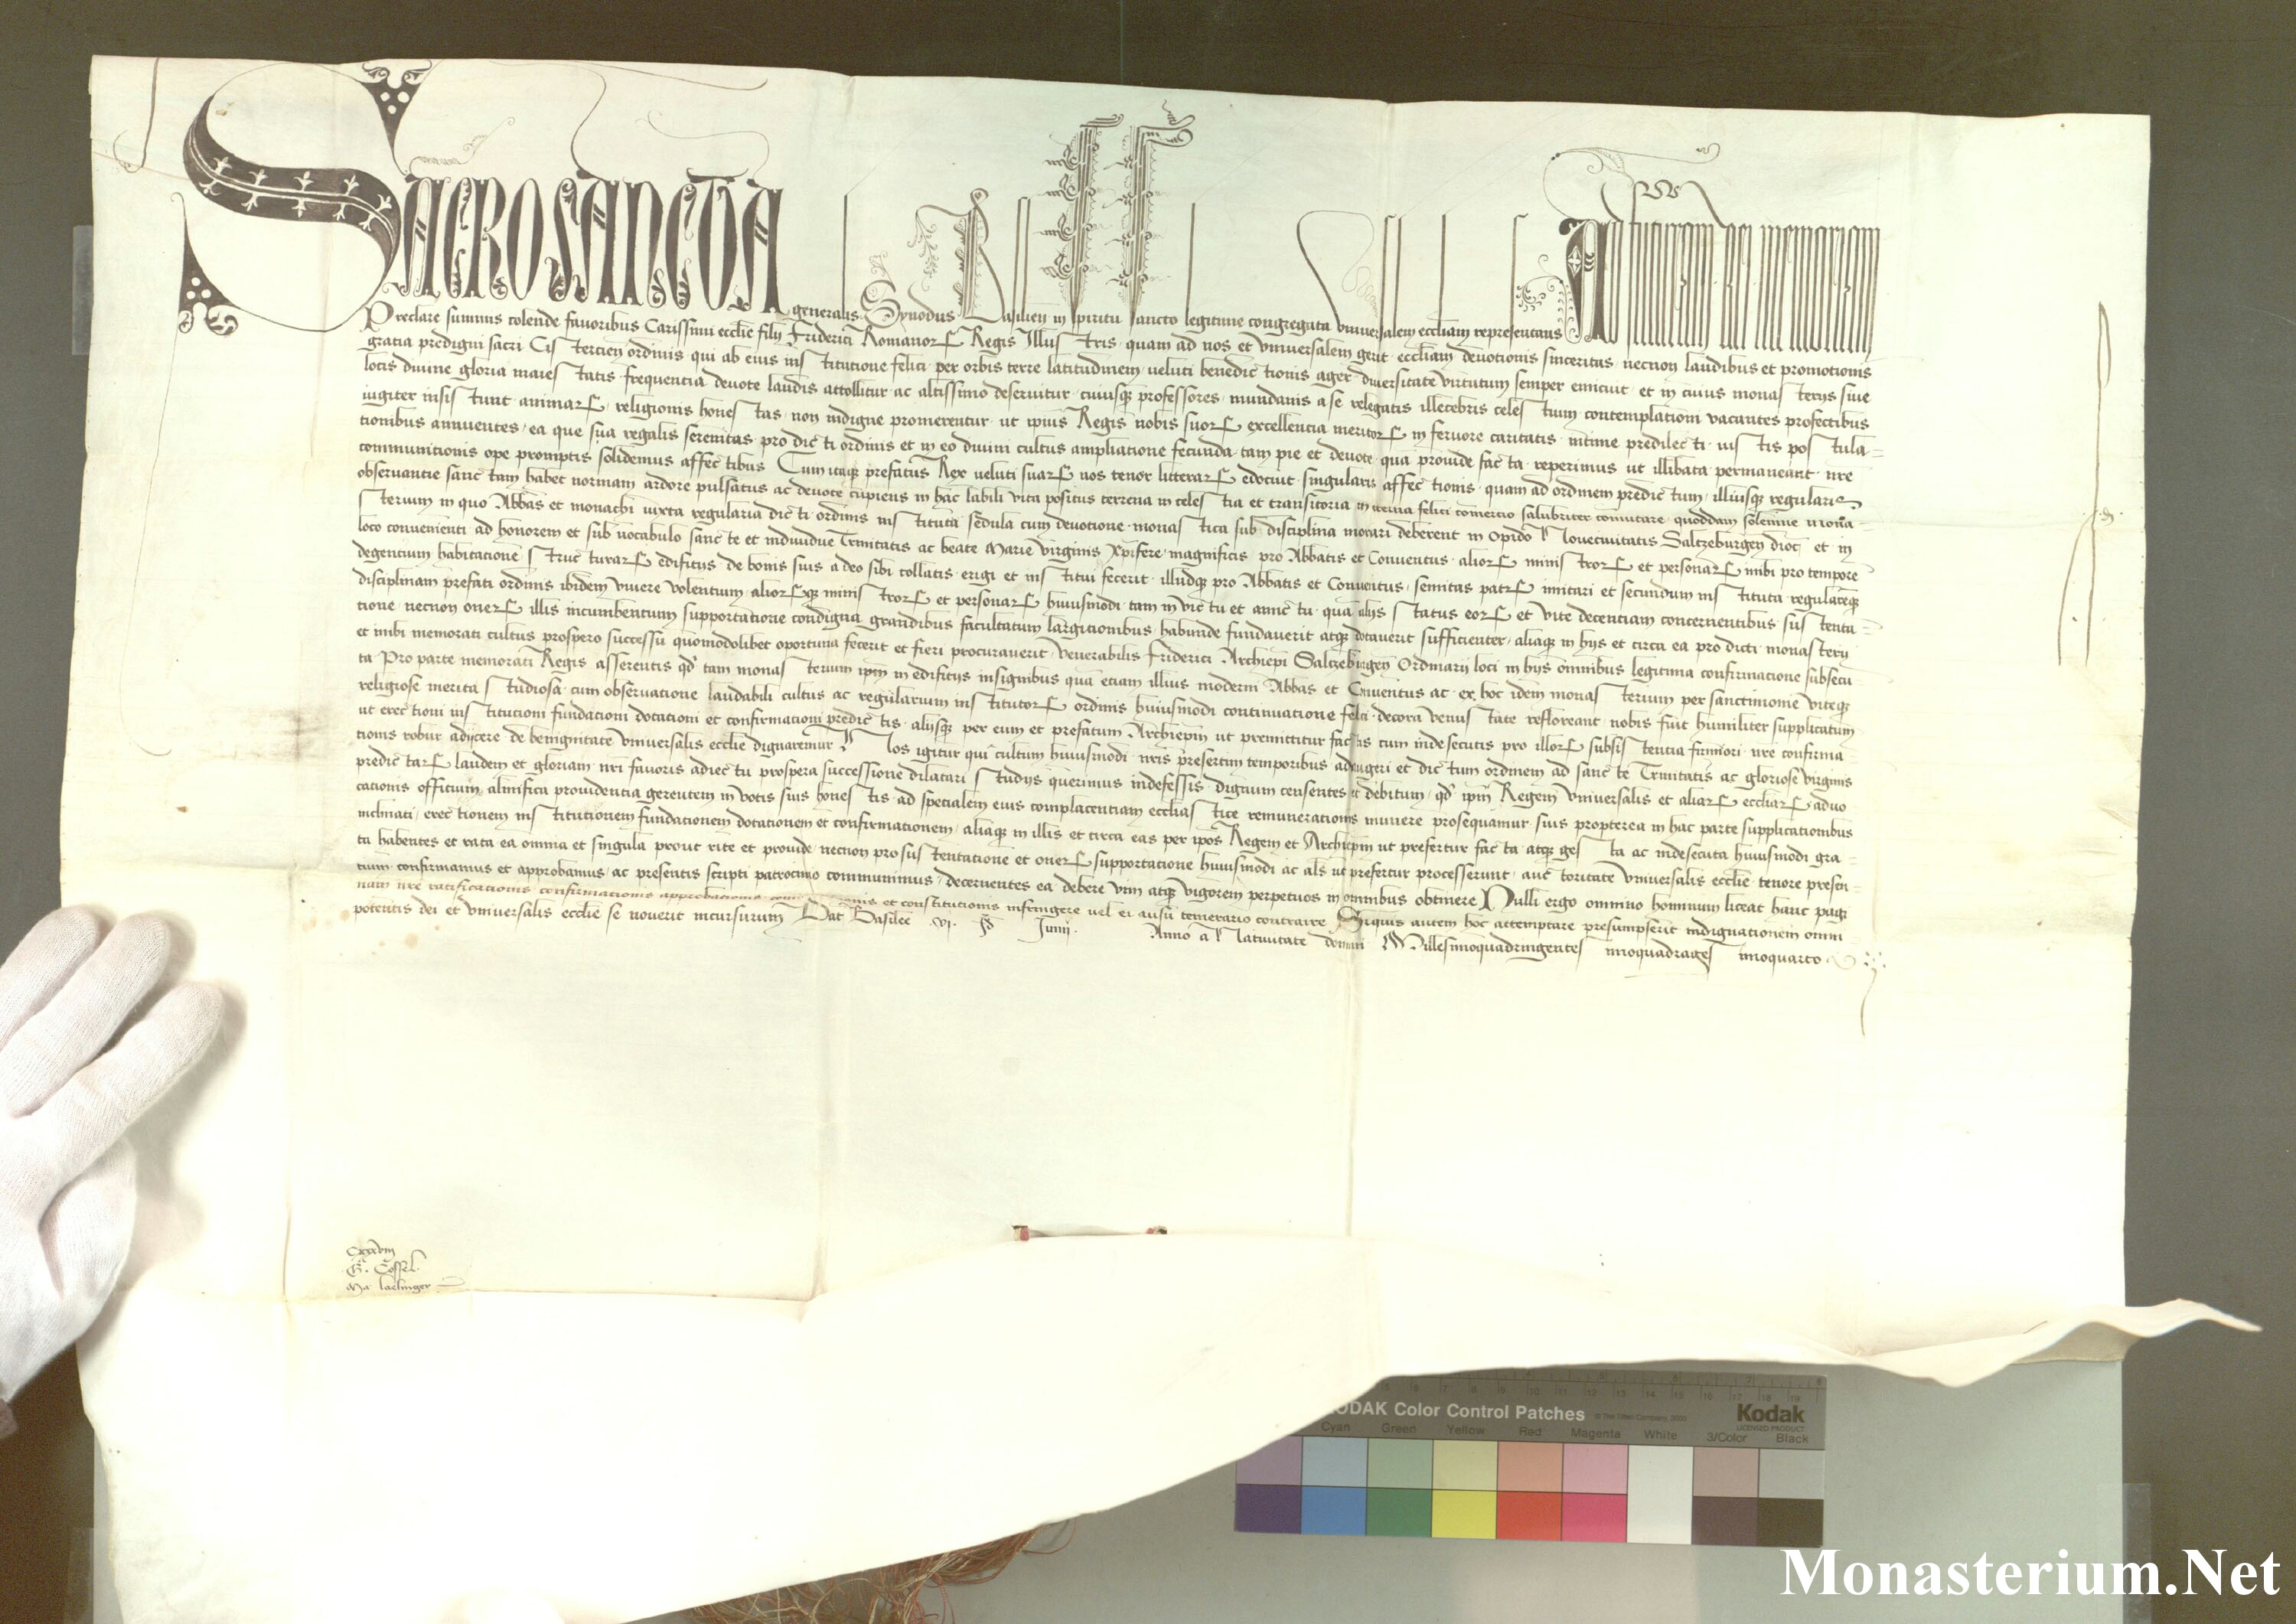 SACROSANCTA generalis Synodus Basilien in spiritu sancto legitime congregata universalem eccliam representans Ad futuram rei memoriam
Preclare summis colende favoribus Carissimi ecclie filij Friderici Romanorꝝ Regis Illustris quam ad nos et universalem gerit eccliam devotionis sinceritas necnon laudibus et promotionis
gratia predigni sacri Cistercien ordinis qui ab eius institutione felici per orbis terre latitudinem veluti benedictionis ager diversitate virtutum semper enituit et in cuius monasterijs sive
locis divine gloria maiestatis frequentia devote laudis attollitur ac altissimo deservitur cuiusqꝫ professores mundanis a se relegatis illecebris celestium contemplationi vacantes profectibus
iugiter insistunt animarꝝ religionis honestas non indigne promerentur ut ipius Regis nobis suorꝝ excellentia meritorꝝ in fervore caritatis intime predilecti iustis postula-
tionibus annuentes ea que sua regalis serenitas pro dicti ordinis et in eo divini cultus ampliatione fecunda tam pie et devote qua provide facta reperimus ut illibata permaneant nre
communitionis ope promptis solidemus affectibus Cum itaqꝫ prefatus Rex veluti suarꝝ nos tenor litterarꝝ edocuit singularis affectionis quam ad ordinem predictum illiusqꝫ regularis
observantie sanctam habet normam ardore pulsatus ac devote cupiens in hac labili vita positus terrena in celestia et transitoria in eterna felici comercio salubriter comutare quoddam solemne mona-
sterium in quo Abbas et monachi iuxta regularia dicti ordinis instituta sedula cum devotione monastica sub disciplina morari deberent in opido Novecivitatis Saltzeburgen dioc et in
loco convenienti ad honorem et sub vocabulo sancte et individue Trinitatis ac beate Marie virginis Xpifere magnificis pro Abbatis et Conventus aliorꝝ ministrorꝝ et personarꝝ inibi pro tempore
degentium habitatione structurarꝝ edificijs de bonis suis a deo sibi collatis erigi et institui fecerit illudqꝫ pro Abbatis et Conventus semitas patrꝝ imitari et secundum instituta regularēqꝫ
disciplinam prefati ordinis ibidem vivere volentium aliorꝝqꝫ ministrorꝝ et personarꝝ huiusmodi tam in victu et amictu qua alijs status eorꝝ et vite decentiam concernentibus sustenta-
tione necnon onerꝝ illis incumbentium supportatione condigna grandibus facultatum largitionibus habunde fundaverit atqꝫ dotaverit sufficienter aliaqꝫ in hijs et circa ea pro dicti monasterij
et inibi memorati cultus prospero successu quomodolibet oportuna fecerit et fieri procuraverit Venerabilis Friderici Archiepi Saltzeburgen Ordinarij loci in hijs omnibus legitima confirmatione subsecu
ta Pro parte memorati Regis asserentis qd tam monasterium ipm in edificijs insignibus qua etiam illius moderni Abbas et Conventus ac ex hoc idem monasterium per sanctimonie viteqꝫ
religiose merita studiosa cum observatione laudabili cultus ac regularium institutorꝝ ordinis huiusmodi continuatione felici decora venustate refloreant nobis fuit humiliter supplicatum
ut erectioni institutioni fundationi dotationi et confirmationi predictis alijsqꝫ per eum et prefatum Archiepm ut premittitur factis cum inde secutis pro illorꝝ subsistentia firmiori nre confirma
tionis robur adijcere de benignitate universalis ecclie dignaremur Nos igitur qui cultum huiusmodi nris presertim temporibus adaugeri et dictum ordinem ad sancte Trinitatis ac gloriose virginis
predictarꝝ laudem et gloriam nri favoris adiectu prospera successione dilatari studijs querimus indefessis dignum censentes et debitum qd ipm Regem universalis et aliarꝝ eccliarꝝ advo
cationis officium almifica providentia gerentem in votis suis honestis ad specialem eius complacentiam ecclesiastice remunerationis munere prosequamur suis propterea in hac parte supplicationibus
inclinati erectionem institutionem fundationem dotationem et confirmationem aliaqꝫ in illis et circa eas per ipos Regem et Archiepm ut prefertur facta atqꝫ gesta ac inde secuta huiusmodi gra-
ta habentes et rata ea omnia et singula prout rite et provide necnon pro sustentatione et onerꝝ supportatione huiusmodi ac als ut prefertur processerunt auctoritate universalis ecclie tenore presen-
tium confirmamus et approbamus ac presentis scripti patrocinio communimus decernentes ea debere vim atqꝫ vigorem perpetuos in omnibus obtinere Nulli ergo omnino hominum liceat hanc pagi
nam nre ratificationis confirmationis approbationis et constitutionis infringere vel ei ausu temerario contraire Siquis autem hoc attemptare presumpserit indignationem omni
potentis dei et universalis ecclie se noverit incursurum Dat Basilee vj Id Junij Anno a Nativitate domini Millesimoquadringentesimoquadragesimoquarto
G. Cossel
Monasterium.Net
KODAK Color Control Patches
Kodak
LICENSED PRODUCT
Cyan Green Yellow Red Magenta White 3/Color Black